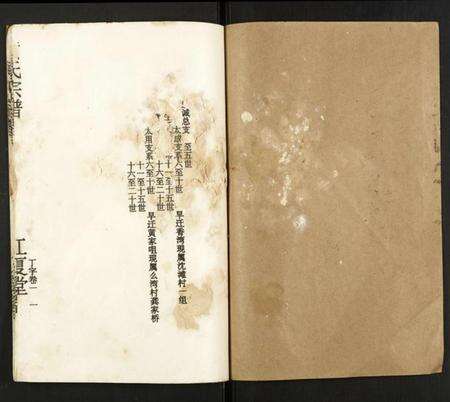 诚总支 至五世
太 支系六至十世 早迁香湾现属沈滩村一组
十一至十五世
十六至二十世
太用支系六至十世 早迁黄家咀现属么湾村龚家桥
十一至十五世
十六至二十世
氏宗谱
江夏堂
丁字卷一 一